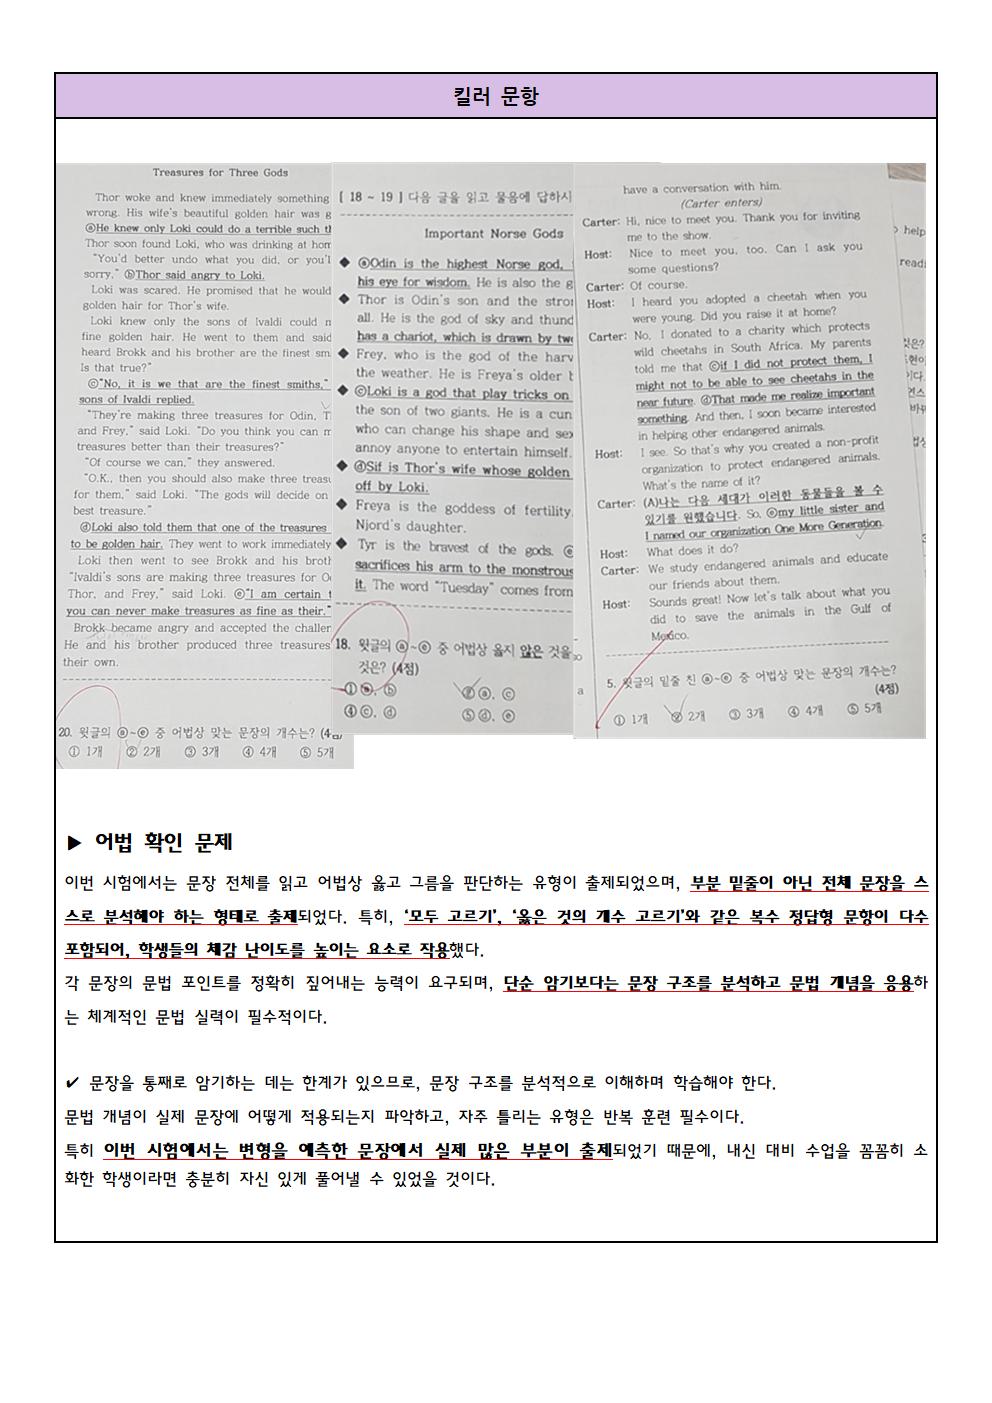 킬러 문항
Treasures for Three Gods
Thor woke and knew immediately something
wrong. His wife's beautiful golden hair was g
ⓐHe knew only Loki could do a terrible such th
Thor soon found Loki, who was drinking at hom
"You'd better undo what you did, or you'l
sorry," ⓑThor said angry to Loki.
Loki was scared. He promised that he would
golden hair for Thor's wife.
Loki knew only the sons of Ivaldi could m
fine golden hair. He went to them and said
heard Brokk and his brother are the finest sm
Is that true?"
ⓒ"No, it is we that are the finest smiths,"
sons of Ivaldi replied.
"They're making three treasures for Odin, T
and Frey," said Loki. "Do you think you can m
treasures better than their treasures?"
"Of course we can," they answered.
"O.K., then you should also make three treasu
for them," said Loki. "The gods will decide on
best treasure."
ⓓLoki also told them that one of the treasures
to be golden hair. They went to work immediately
Loki then went to see Brokk and his broth
"Ivaldi's sons are making three treasures for Od
Thor, and Frey," said Loki. ⓔ"I am certain t
you can never make treasures as fine as their."
Brokk became angry and accepted the challen
He and his brother produced three treasures
their own.
20. 윗글의 ⓐ~ⓔ 중 어법상 맞는 문장의 개수는? (4점)
① 1개 ② 2개 ③ 3개 ④ 4개 ⑤ 5개
[ 18 ~ 19 ] 다음 글을 읽고 물음에 답하시
Important Norse Gods
◆ ⓐOdin is the highest Norse god,
his eye for wisdom. He is also the g
◆ Thor is Odin's son and the stron
all. He is the god of sky and thund
has a chariot, which is drawn by two
◆ Frey, who is the god of the harv
the weather. He is Freya's older b
◆ ⓒLoki is a god that play tricks on
the son of two giants. He is a cun
who can change his shape and sex
annoy anyone to entertain himself.
◆ ⓓSif is Thor's wife whose golden
off by Loki.
◆ Freya is the goddess of fertility
Njord's daughter.
◆ Tyr is the bravest of the gods. ⓔ
sacrifices his arm to the monstrous
it. The word "Tuesday" comes from
18. 윗글의 ⓐ~ⓔ 중 어법상 옳지 않은 것을
것은? (4점)
① ⓐ, ⓑ ② ⓐ, ⓒ
④ ⓒ, ⓓ ⑤ ⓓ, ⓔ
have a conversation with him.
(Carter enters)
Carter: Hi, nice to meet you. Thank you for inviting
me to the show.
Host: Nice to meet you, too. Can I ask you
some questions?
Carter: Of course.
Host: I heard you adopted a cheetah when you
were young. Did you raise it at home?
Carter: No, I donated to a charity which protects
wild cheetahs in South Africa. My parents
told me that ⓒif I did not protect them, I
might not to be able to see cheetahs in the
near future. ⓓThat made me realize important
something. And then, I soon became interested
in helping other endangered animals.
Host: I see. So that's why you created a non-profit
organization to protect endangered animals.
What's the name of it?
Carter: (A)나는 다음 세대가 이러한 동물들을 볼 수
있기를 원했습니다. So, ⓔmy little sister and
I named our organization One More Generation.
Host: What does it do?
Carter: We study endangered animals and educate
our friends about them.
Host: Sounds great! Now let's talk about what you
did to save the animals in the Gulf of
Mexico.
5. 윗글의 밑줄 친 ⓐ~ⓔ 중 어법상 맞는 문장의 개수는?
(4점)
① 1개 ② 2개 ③ 3개 ④ 4개 ⑤ 5개
▶ 어법 확인 문제
이번 시험에서는 문장 전체를 읽고 어법상 옳고 그름을 판단하는 유형이 출제되었으며, 부분 밑줄이 아닌 전체 문장을 스
스로 분석해야 하는 형태로 출제되었다. 특히, '모두 고르기', '옳은 것의 개수 고르기'와 같은 복수 정답형 문항이 다수
포함되어, 학생들의 체감 난이도를 높이는 요소로 작용했다.
각 문장의 문법 포인트를 정확히 짚어내는 능력이 요구되며, 단순 암기보다는 문장 구조를 분석하고 문법 개념을 응용하
는 체계적인 문법 실력이 필수적이다.
✔ 문장을 통째로 암기하는 데는 한계가 있으므로, 문장 구조를 분석적으로 이해하며 학습해야 한다.
문법 개념이 실제 문장에 어떻게 적용되는지 파악하고, 자주 틀리는 유형은 반복 훈련 필수이다.
특히 이번 시험에서는 변형을 예측한 문장에서 실제 많은 부분이 출제되었기 때문에, 내신 대비 수업을 꼼꼼히 소
화한 학생이라면 충분히 자신 있게 풀어낼 수 있었을 것이다.